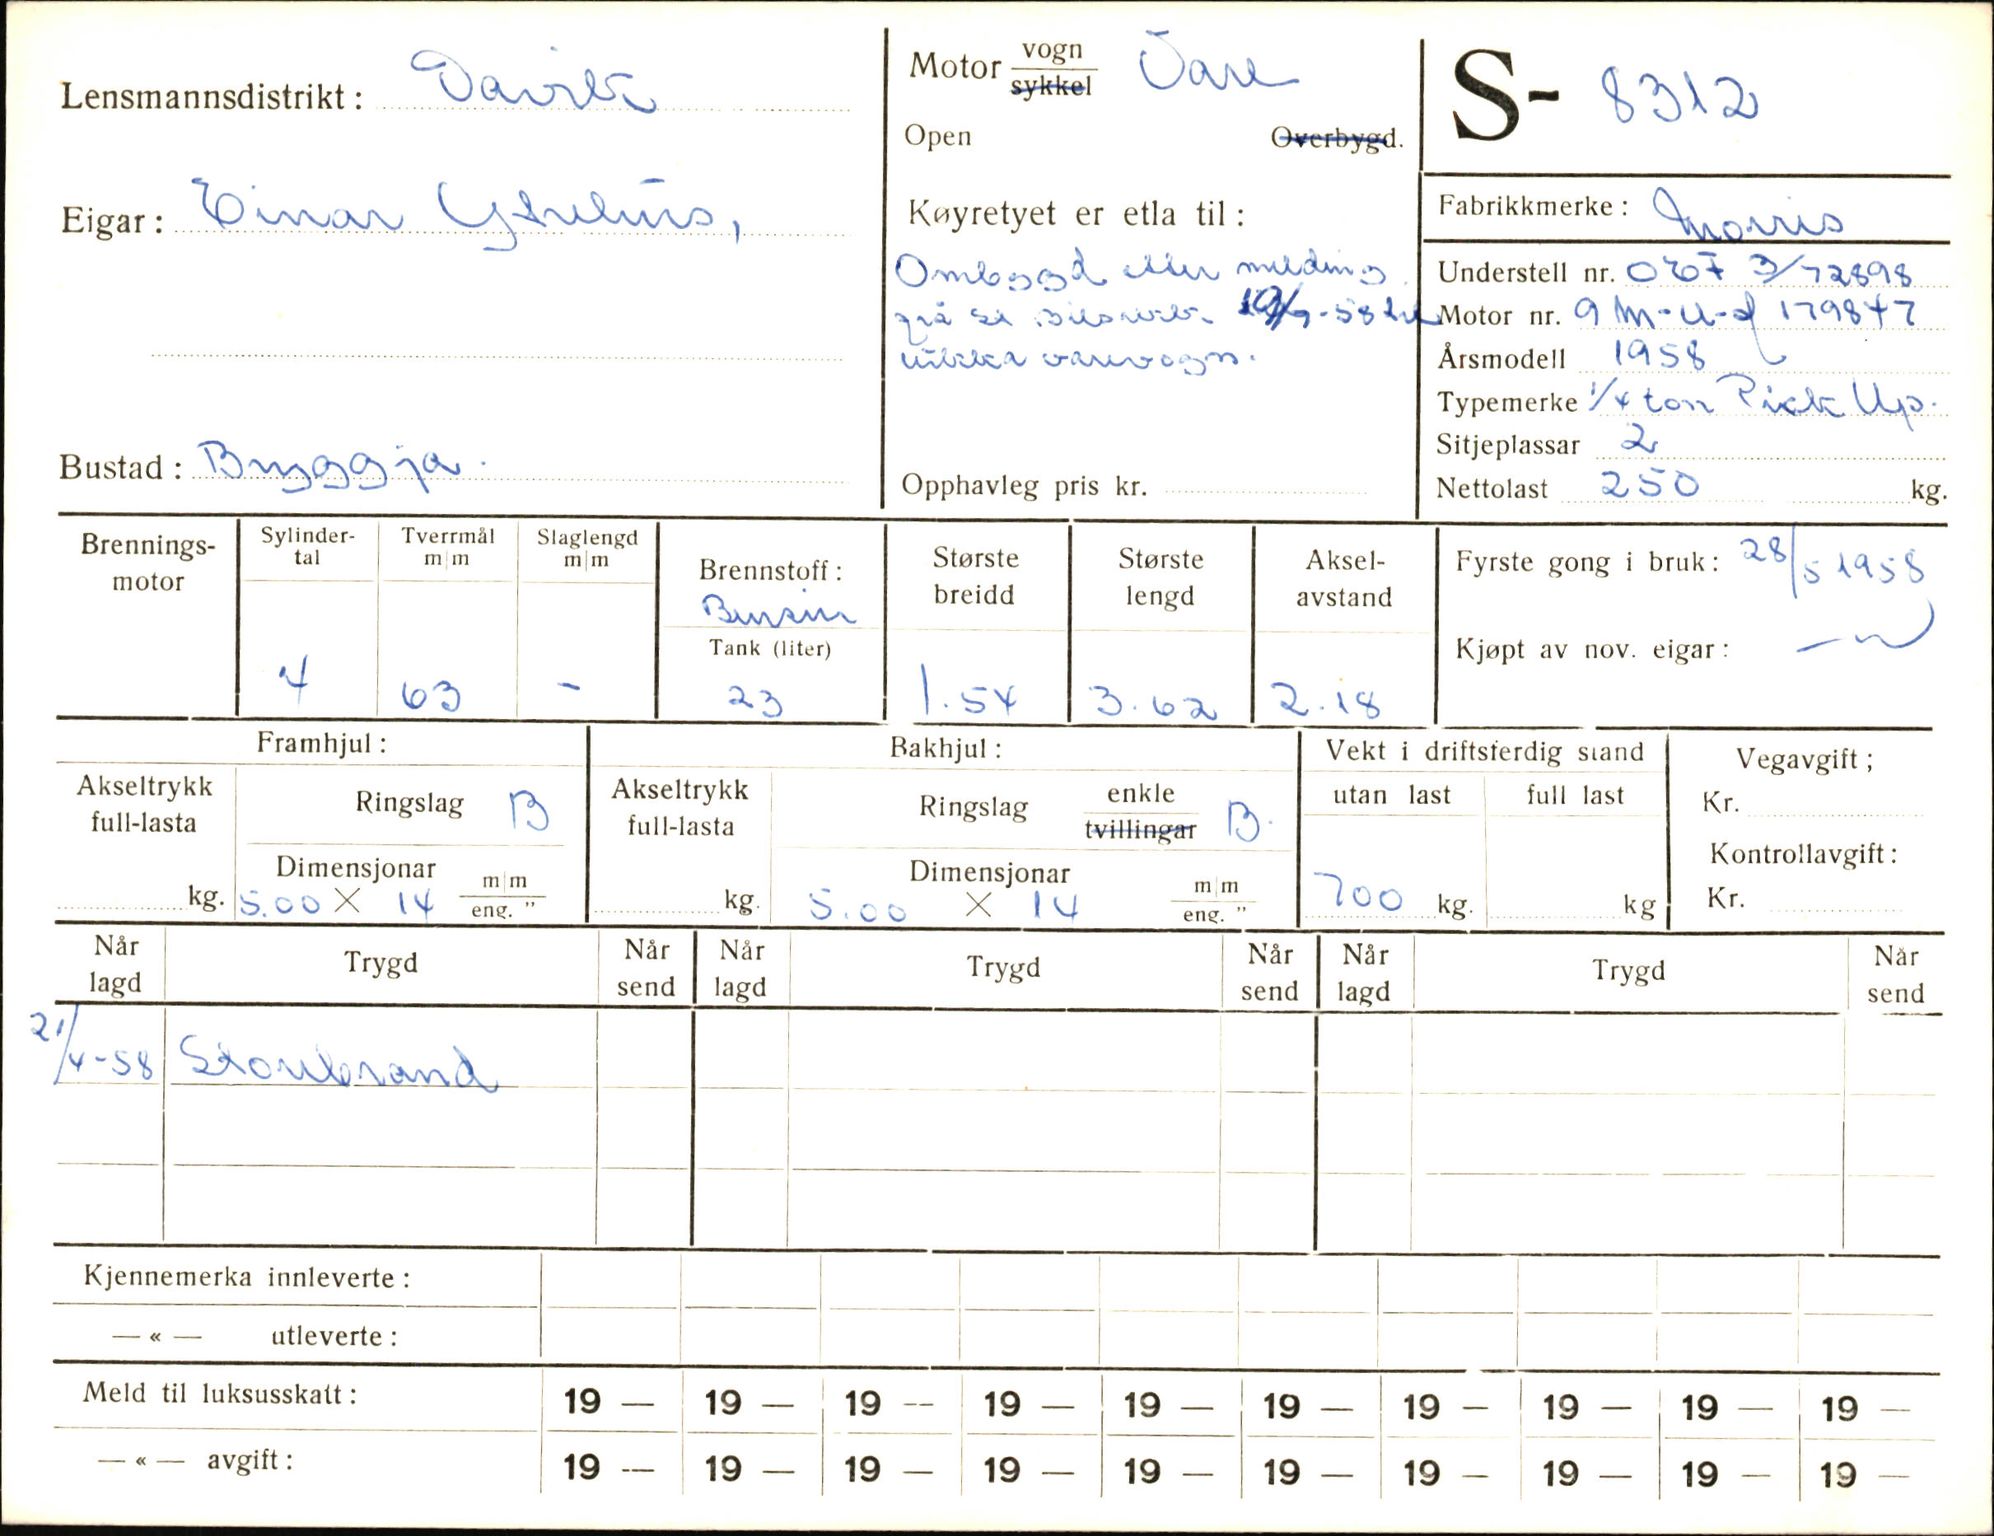 Lensmannsdistrikt: Davik
Eigar: Einar Ytrehus,
Bustad: Bryggja.
Motor vogn Vare
sykkel
Open Overbygd.
Køyretyet er etla til:
Ombygd etter melding
frå 19/9-58 til
lukka varevogn.
Opphavleg pris kr.
S- 8312
Fabrikkmerke: Morris
Understell nr. OEF 3/72898
Motor nr. 9 M-U-  179847
Årsmodell 1958
Typemerke 1/4 ton Pick Up.
Sitjeplassar 2
Nettolast 250 kg.
Brennings-
motor
Sylinder-
tal
4
Tverrmål
m|m
63
Slaglengd
m|m
-
Brennstoff:
Bensin
Tank (liter)
23
Største
breidd
1.54
Største
lengd
3.62
Aksel-
avstand
2.18
Fyrste gong i bruk: 28/5 1958
Kjøpt av nov. eigar: — " —
Framhjul:
Akseltrykk
full-lasta
kg.
Ringslag B
Dimensjonar m|m
5.00 X 14 eng. "
Bakhjul:
Akseltrykk
full-lasta
kg.
Ringslag enkle B.
tvillingar
Dimensjonar m|m
5.00 X 14 eng. "
Vekt i driftsferdig stand
utan last full last
700 kg. kg
Vegavgift;
Kr.
Kontrollavgift:
Kr.
Når
lagd Trygd Når
send Når
lagd Trygd Når
send Når
lagd Trygd Når
send
21/4-58 Storebrand
Kjennemerka innleverte:
— « — utleverte:
Meld til luksusskatt: 19 — 19 — 19 — 19 — 19 — 19 — 19 — 19 — 19 — 19 —
— « — avgift: 19 — 19 — 19 — 19 — 19 — 19 — 19 — 19 — 19 — 19 —